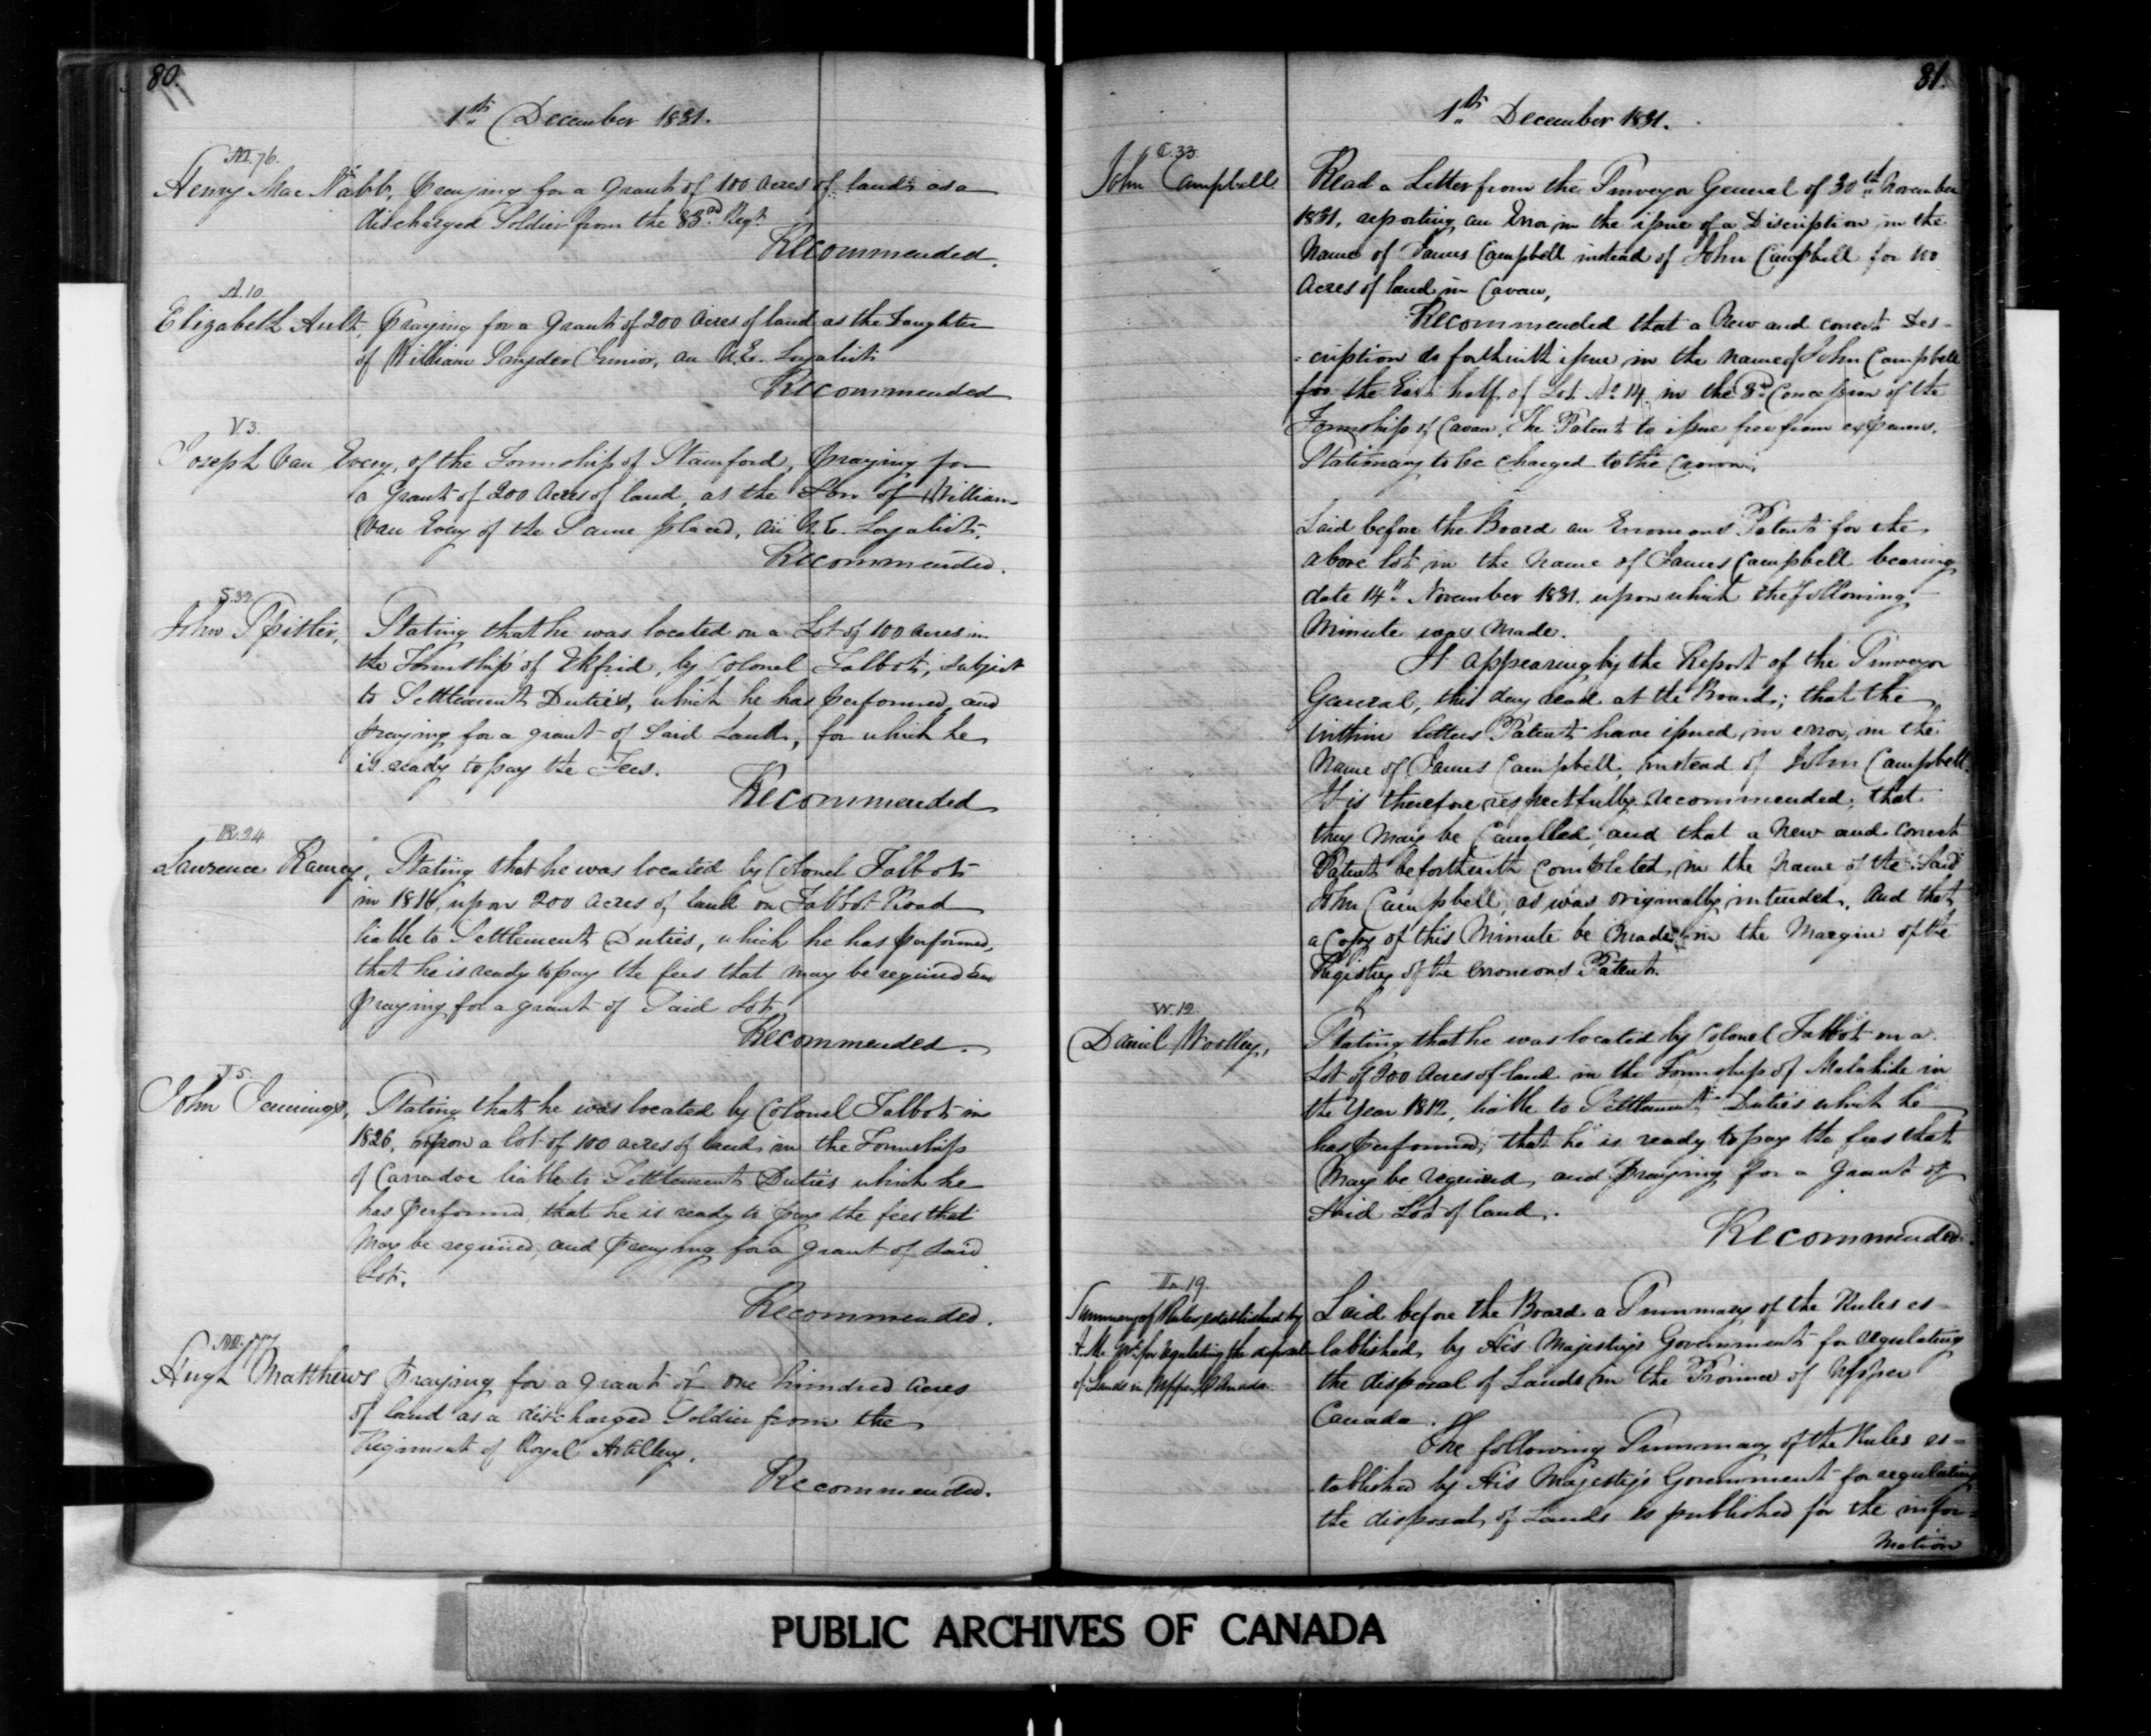 80.
1th December 1831.
M.76.
Henry Mac Nabb, Praying for a Grant of 100 Acres of land as a
discharged Soldier from the 83rd Regt.
Recommended.
A.10
Elizabeth Ault, Praying for a Grant of 200 Acres of land as the Daughter
of William Snyder Junior, an U.E. Loyalist
Recommended
V.3.
Joseph Van Every, of the Township of Stamford, Praying for
a Grant of 200 Acres of land, as the Son of William
Van Every of the Same place, an U.E. Loyalist.
Recommended.
S.39
John Stating that he was located on a Lot of 100 Acres in
the Township of Ekfrid, by Colonel Talbot, subject
to Settlement Duties, which he has performed, and
praying for a grant of Said Land, for which he
is ready to pay the Fees.
Recommended
R.24
Lawrence Ramey, Stating that he was located by Colonel Talbot
in 1816, upon 200 acres of land on Talbot Road
liable to Settlement Duties, which he has performed,
that he is ready to pay the fees that may be required and
Praying for a grant of Said Lot.
Recommended.
J 5.
John Jennings, Stating that he was located by Colonel Talbot in
1826, upon a lot of 100 acres of land in the Township
of Carradoc liable to Settlement Duties which he
has performed, that he is ready to pay the fees that
May be required, and Praying for a grant of Said
Lot.
Recommended.
M.77
Hugh Matthews Praying for a grant of One hundred Acres
of land as a discharged Soldier from the
Regiment of Royal Artillery.
Recommended.
81.
1th December 1831.
C.33.
John Campbell Read a Letter from the Surveyor General of 30th November
1831, reporting an Error in the issue of a Discription in the
Name of James Campbell instead of John Campbell for 100
Acres of land in Cavan,
Recommended that a New and correct Des-
-cription do forthwith issue in the name of John Campbell
for the East half of Lot No 14 in the 8th Concession of the
Township of Cavan. The Patent to issue free from expense.
Stationary to be charged to the Crown.
Laid before the Board an Erroneous Patent for the
above lot in the Name of James Campbell bearing
date 14th November 1831. upon which the following
Minute was Made.
It appearing by the Report of the Surveyor
General, this day read at the Board; that the
within letters Patent have issued in error, in the
Name of James Campbell, instead of John Campbell.
It is therefore respectfully recommended, that
they may be Cancelled; and that a New and correct
Patent be forthwith Completed, in the Name of the Said
John Campbell, as was originally intended, And that
a Copy of this Minute be Made in the Margin of the
Registry of the erroneous Patent.
W.12
Daniel Woolley, Stating that he was located by Colonel Talbot on a
Lot of 200 Acres of land in the Township of Malahide in
the Year 1812, liable to Settlement Duties which he
has performed, that he is ready to pay the fees that
May be required, and Praying for a grant of
Said Lot of land.
Recommended.
19.
Summary of Rules established by
H.M. Govt for regulating the disposal
of Lands in Upper Canada.
Laid before the Board a Summary of the Rules es-
-tablished, by His Majesty's Government for regulating
the disposal of Lands in the Province of Upper
Canada.
The following Summary of the Rules es-
tablished by His Majesty's Government for regulating
the disposal of Lands is published for the infor-
mation
PUBLIC ARCHIVES OF CANADA